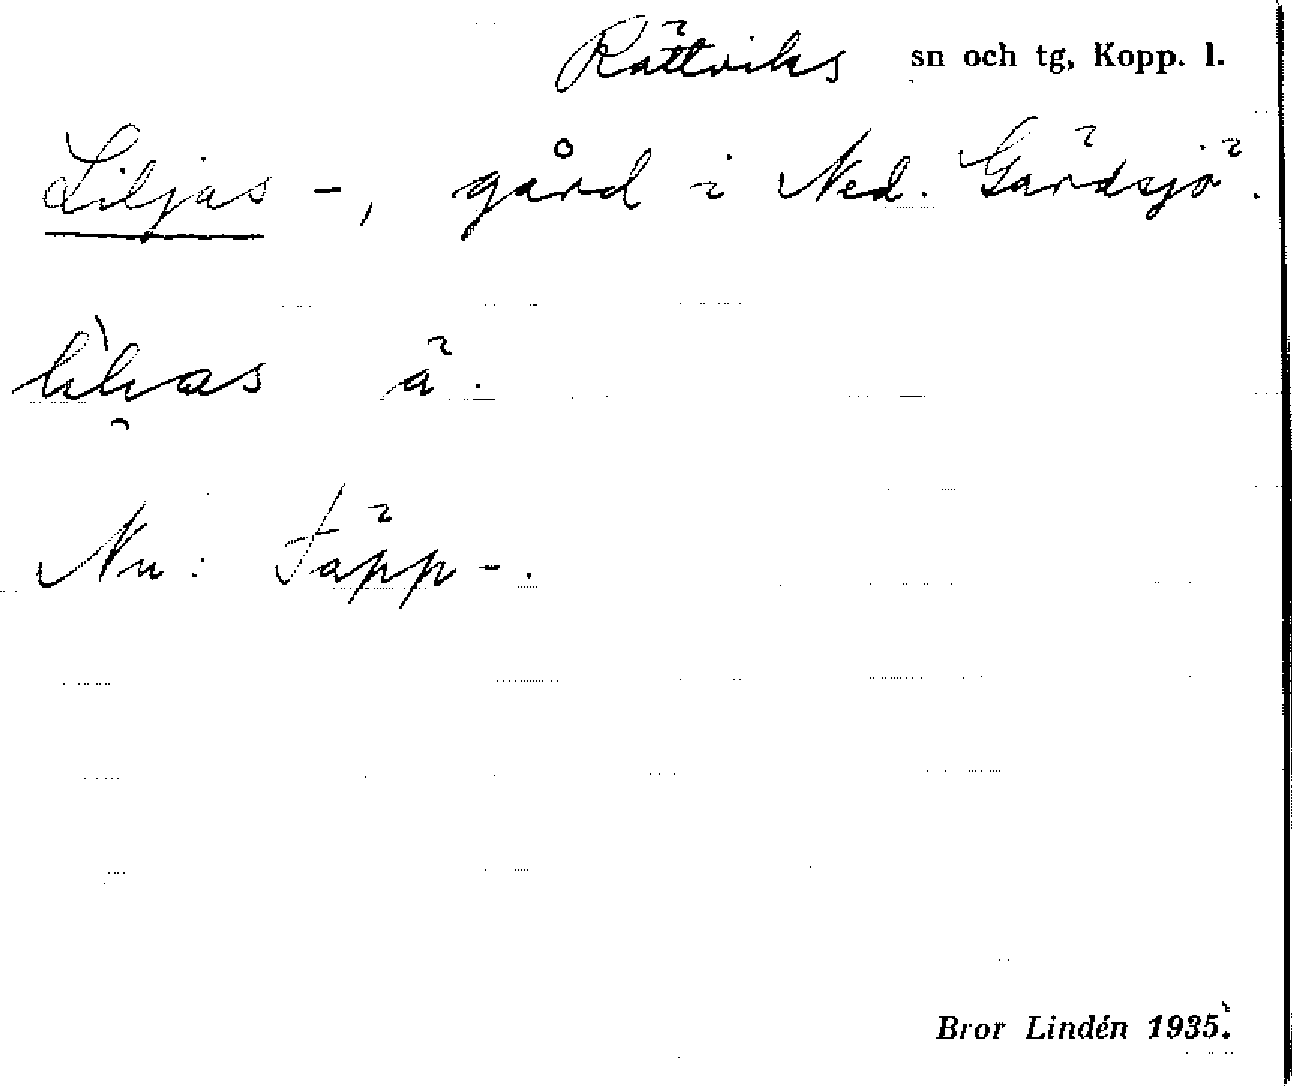 Rättviks sn och tg, Kopp. l.
Liljas -, gård i Ned. Gärdsjö.
ä.
Nu: Täpp-.
Bror Lindén 1935.